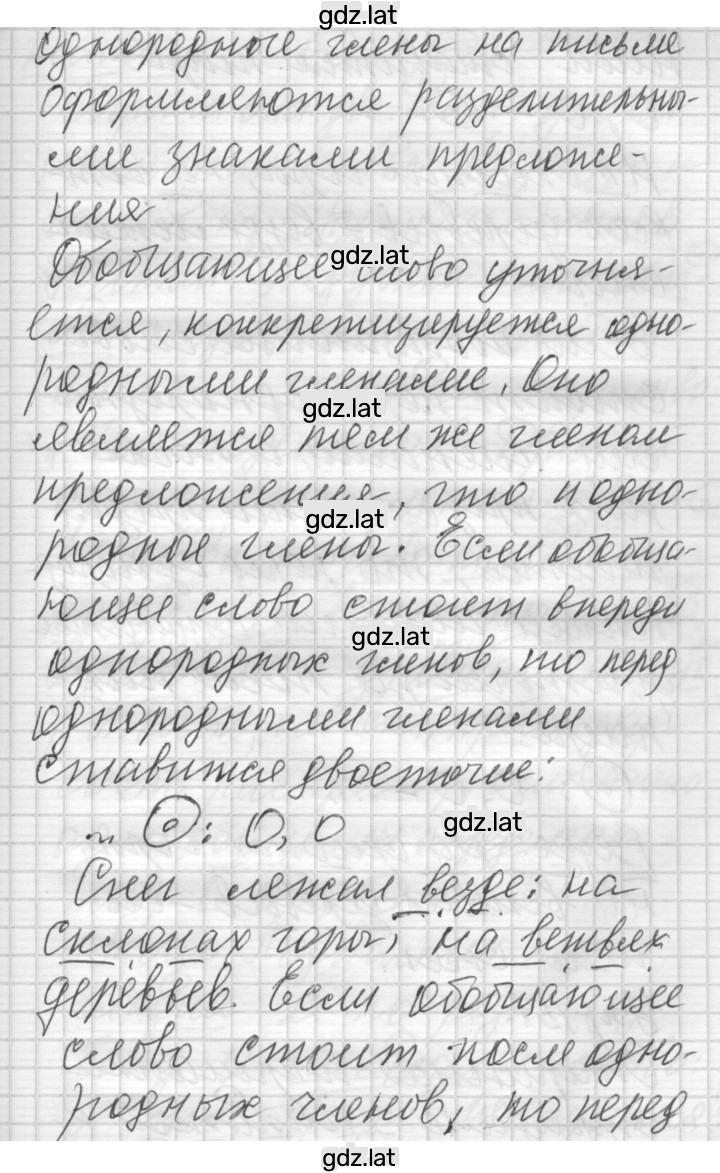 gdz.lat
однородные члены на письме
оформляются разделительны-
ми знаками предложе-
ния
Обобщающее слово уточня-
gdz.lat
ется, конкретизируется одно-
родными членами. Оно
gdz.lat
является тем же членом
предложения, что и одно-
gdz.lat
родные члены. Если обобща-
ющее слово стоит впереди
gdz.lat
однородных членов, то перед
однородными членами
ставится двоеточие:
gdz.lat
О: О, О
Снег лежал везде: на
склонах горы, на ветвях
деревьев. Если обобщающее
слово стоит после одно-
родных членов, то перед
gdz.lat